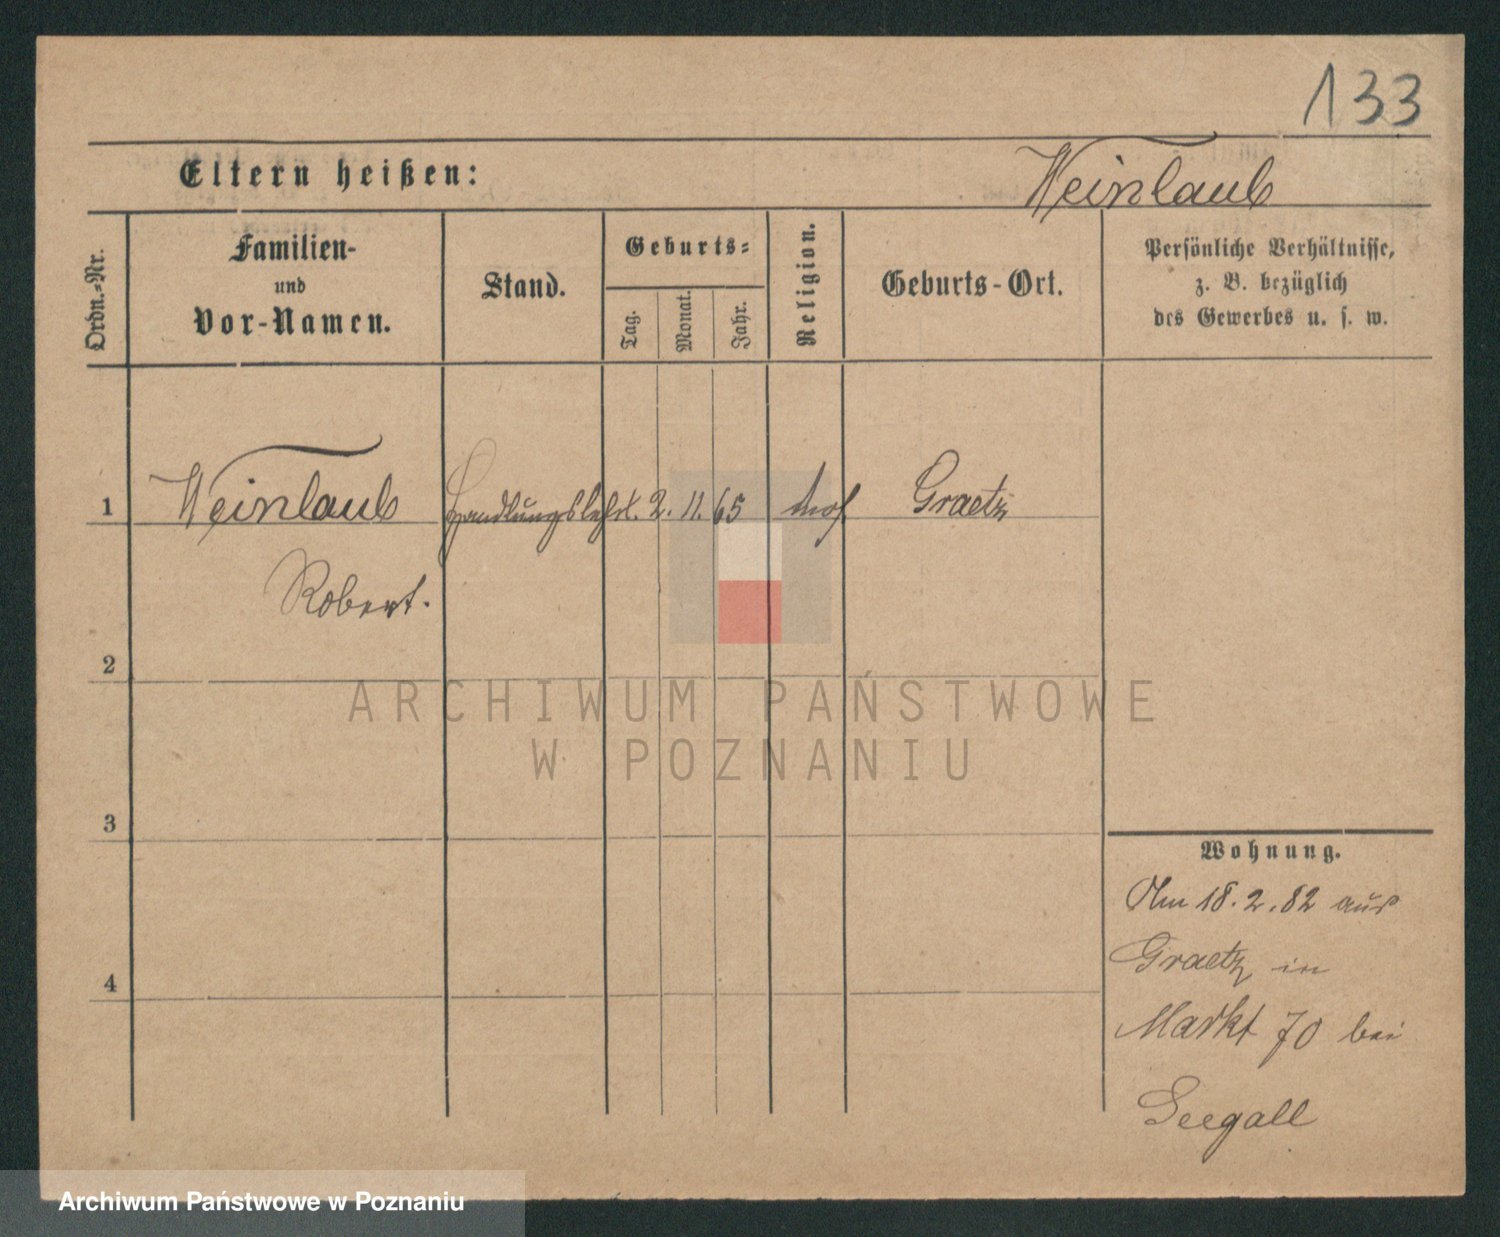 133
Eltern heißen: Weinlaub
Ordn.-Nr.
Familien-
und
Vor-Namen.
Stand.
Geburts-
Tag.
Monat.
Jahr.
Religion.
Geburts-Ort.
Persönliche Verhältnisse,
z. B. bezüglich
des Gewerbes u. s. w.
1 Weinlaub Handlungslehrl. 2. 11. 65 mos Graetz
Robert.
2
3
4
Wohnung.
Am 18. 2. 82 aus
Graetz in
Markt 70 bei
Seegall
ARCHIWUM PAŃSTWOWE
W POZNANIU
Archiwum Państwowe w Poznaniu